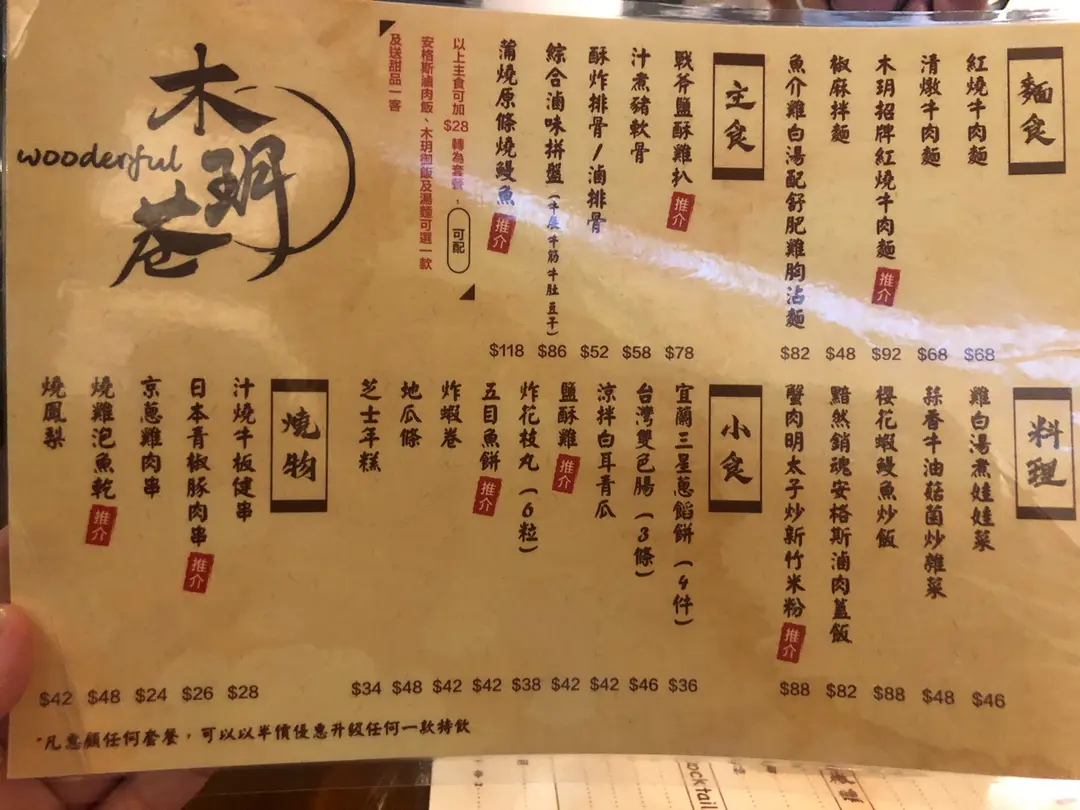 木玥巷
wooderful
麵食
紅燒牛肉麵 $68
清燉牛肉麵 $68
木玥招牌紅燒牛肉麵 推介 $92
椒麻拌麵 $48
魚介雞白湯配舒肥雞胸沾麵 $82
主食
戰斧鹽酥雞扒 推介 $78
汁煮豬軟骨 $58
酥炸排骨/滷排骨 $52
綜合滷味拼盤(牛展 牛筋 牛肚 豆干) $86
蒲燒原條燒鰻魚 推介 $118
以上主食可加$28轉為套餐，可配
安格斯滷肉飯、木玥御飯及湯麵可選一款
及送甜品一客
料理
雞白湯煮娃娃菜 $46
蒜香牛油菇菌炒雜菜 $48
櫻花蝦鰻魚炒飯 $88
黯然銷魂安格斯滷肉蓋飯 $82
蟹肉明太子炒新竹米粉 推介 $88
小食
宜蘭三星蔥餡餅(4件) $36
台灣雙色腸(3條) $46
涼拌白耳青瓜 $42
鹽酥雞 推介 $42
炸花枝丸(6粒) $38
五目魚餅 推介 $42
炸蝦卷 $42
地瓜條 $48
芝士年糕 $34
燒物
汁燒牛板健串 $28
日本青椒豚肉串 推介 $26
京蔥雞肉串 $24
燒雞泡魚乾 推介 $48
燒鳳梨 $42
*凡惠顧任何套餐，可以以半價優惠升級任何一款特飲
ocktail